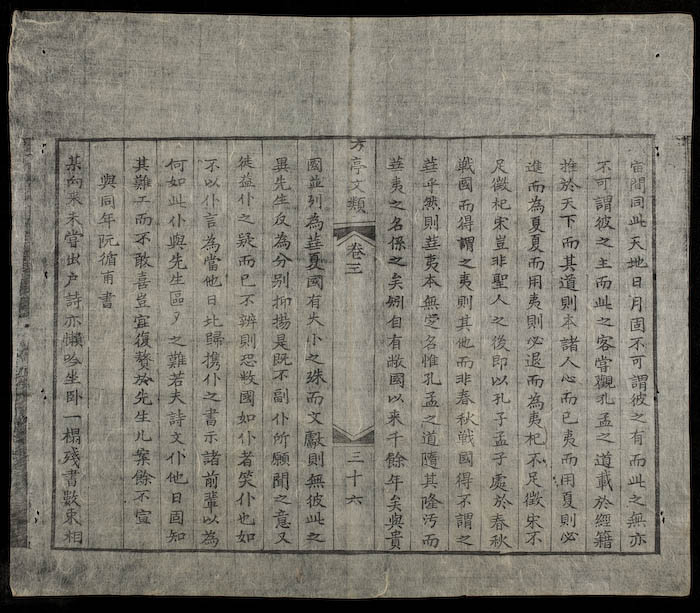 宙間同此天地日月固不可謂彼之有而此之無亦
不可謂彼之主而此之客當觀孔孟之道載於經籍
推於天下而其道則本諸人心而已夷而用夏則必
進而為夏夏而用夷則必退而為夷杞不足徵宋不
足徵杞宋豈非聖人之後即以孔子孟子處於春秋
戰國而得謂之夷則其他而非春秋戰國得不謂之
華乎然則華夷本無定名惟孔孟之道隨其隆污而
華夷之名係之矣矧自有敝國以來千餘年矣與貴
方亭文類
卷三
三十六
國並列為華夏國有大小之殊而文獻則無彼此之
異先生反為分別抑揚是既不副仆所願聞之意又
徒益仆之疑而已不辨則恐敝國如仆者笑仆也如
不以仆言為當他日北歸携仆之書示諸前輩以為
何如此仆與先生區々之難若夫詩文仆他日固知
其難工而不敢喜豈宜復贅於先生几案餘不宣
與同年阮循甫書
某向來未嘗出户詩亦懶吟坐卧一榻殘書數束相